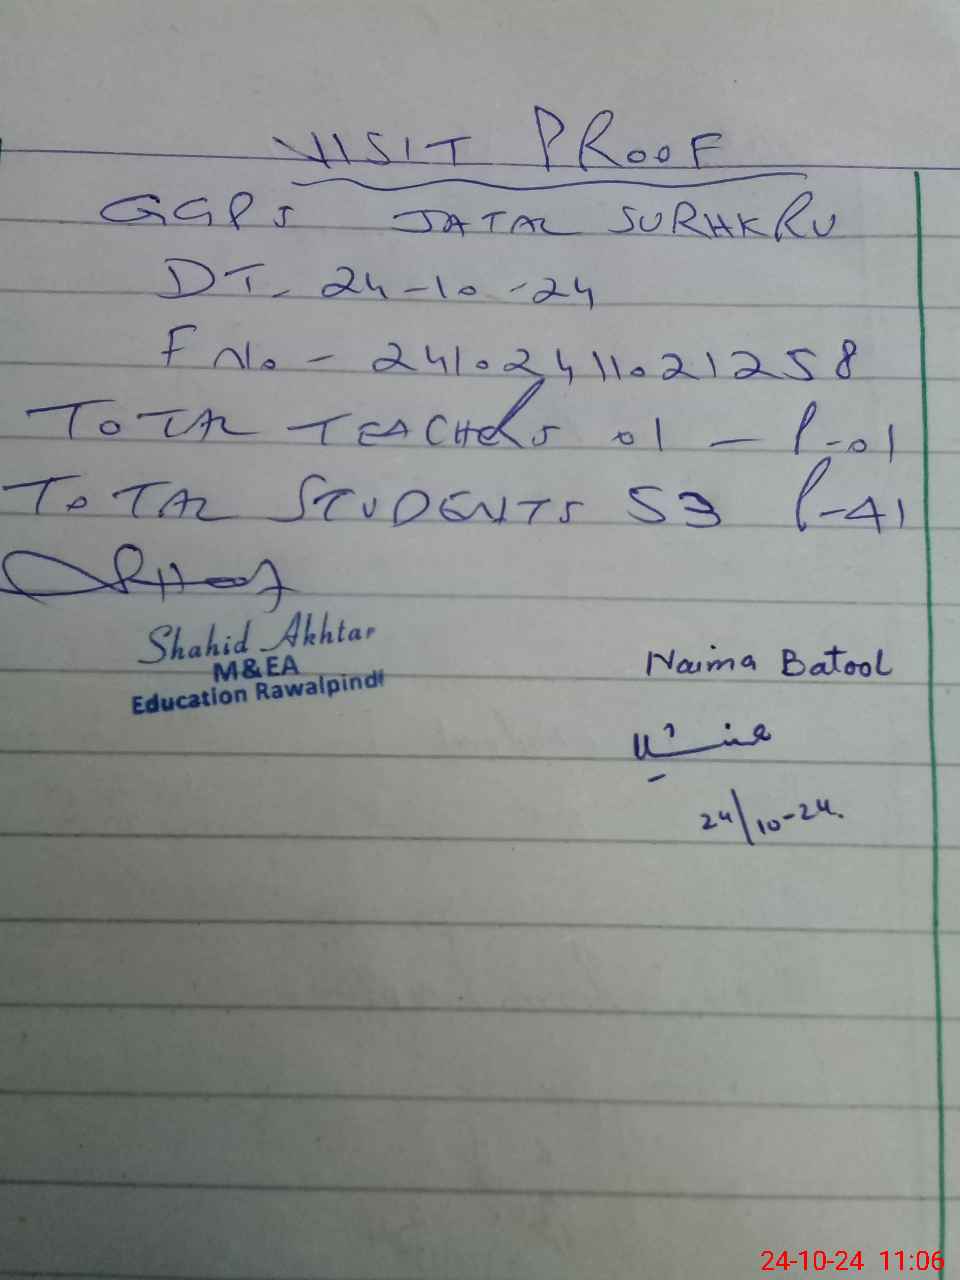 VISIT PROOF
GGPS JATAL SURHKRU
DT- 24-10-24
F No. - 24102411021258
TOTAL TEACHERS 01 - P-01
TOTAL STUDENTS 53 P-41
Shahid Akhtar
M&EA
Education Rawalpindi
Naima Batool
24/10-24.
24-10-24 11:06